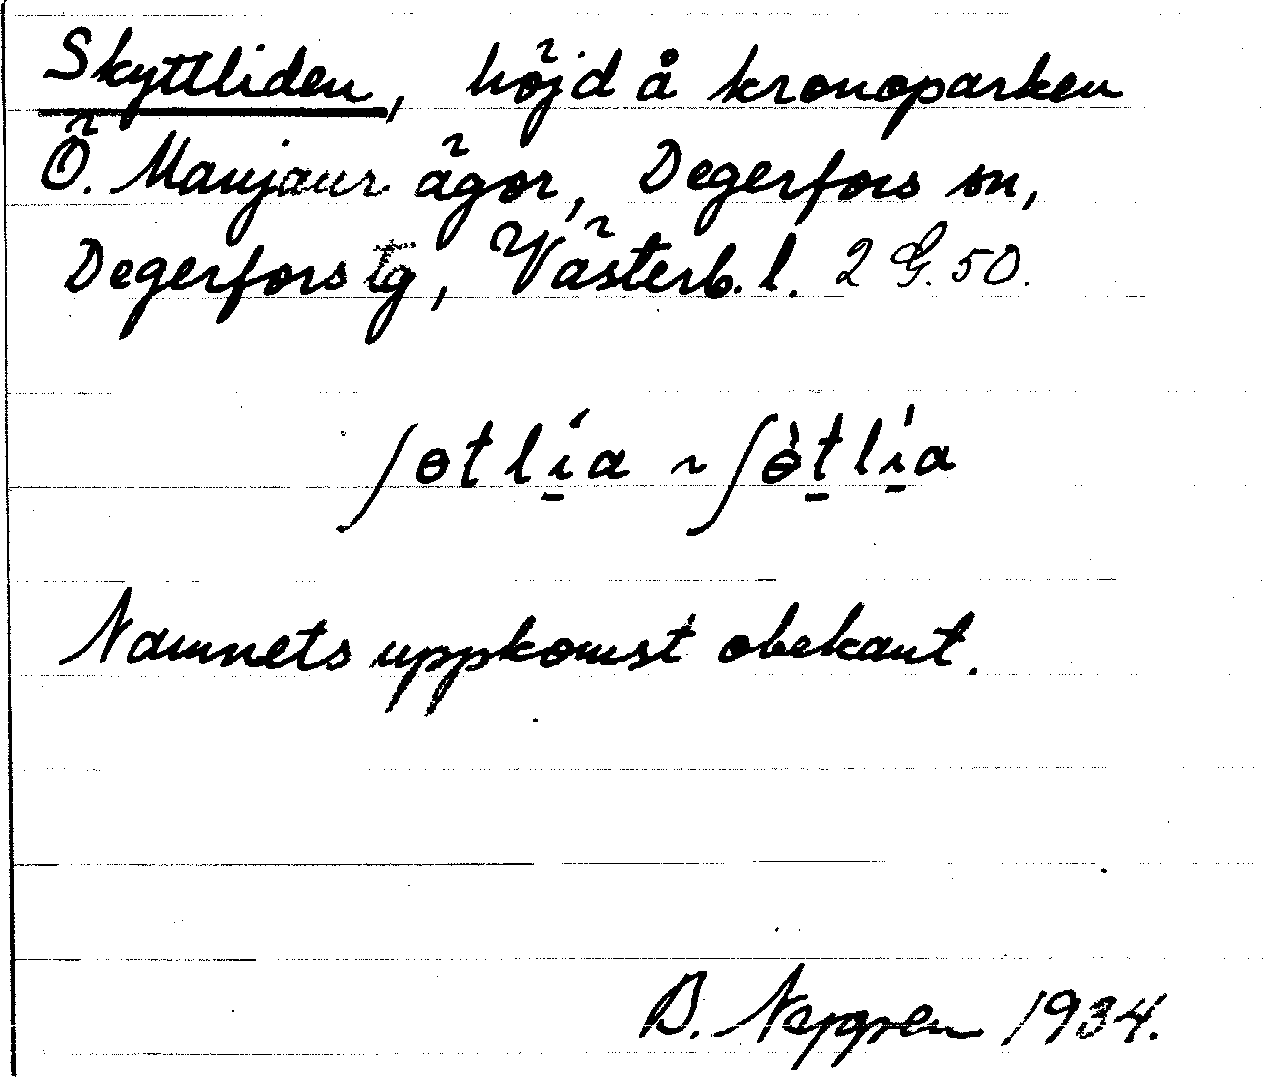 Skyttliden, höjd å kronoparken
Ö. Manjaur ägor, Degerfors sn,
Degerfors tg, Västerb. l. 2 G. 50.
ʃɵtlía ~ ʃɵ̀t̠lía
Namnets uppkomst obekant.
B. Nygren 1934.